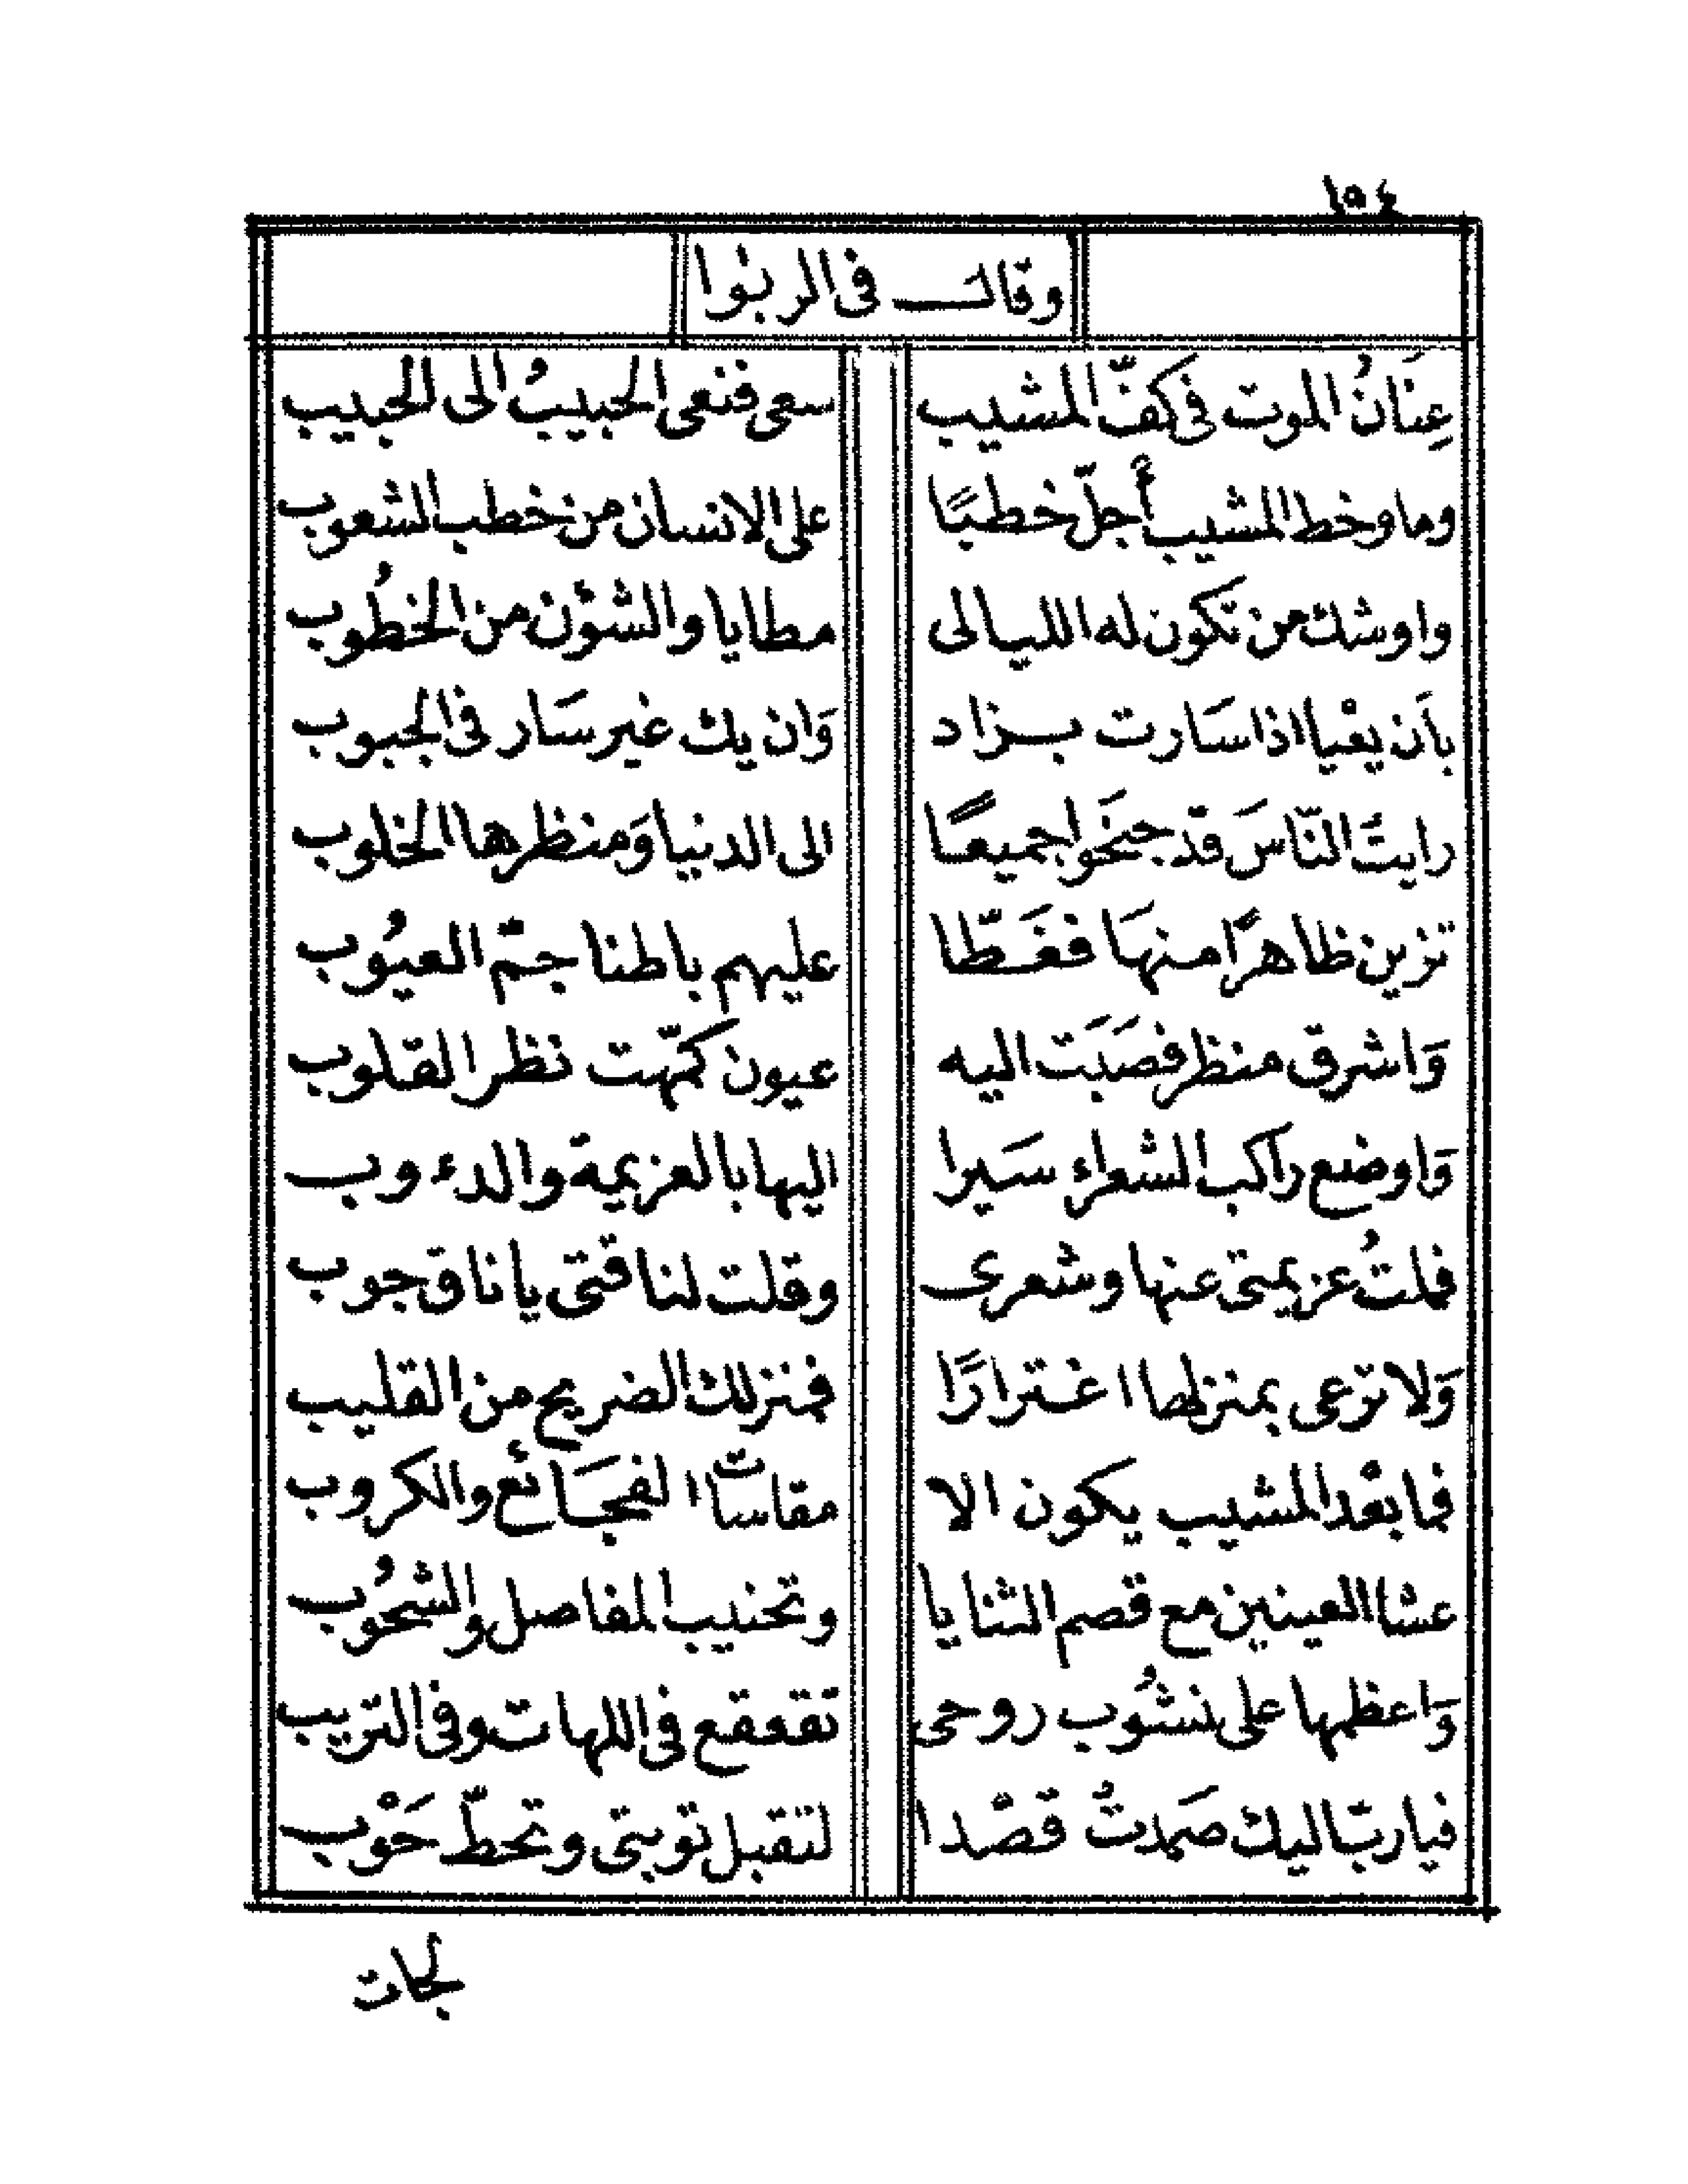 ١٥٤
وقال في الربوا
عِنَانُ الموت في كفّ المشيب سعى فنعى الحبيبُ الى الحبيب
وما وخط المشيب أجلّ خطبًا على الانسان من خطب الشعوب
واوشك من تكون له الليالى مطايا والشؤن من الخطُوب
بأن يعْيا اذا سَارت بزاد وَان يك غير سَار في الجبوب
رايتُ النّاسَ قد جنَحوا جميعًا الى الدنيا وَمنظرها الخلوب
تزين ظاهرًا منهَا فغَطّا عليهم باطنا جمّ العيُوب
وَاشرق منظر فصَبَت اليه عيون كمّهت نظر القلوب
وَاوضع راكب الشعراء سَيرا اليها بالعزيمة والدءوب
فملتُ عزيمتى عنها وشعرى وقلت لناقتى ياناق جوب
وَلا ترعى بمنزلها اغترارًا فمنزلك الضريح من القليب
فما بعْد المشيب يكون الا مقاسات الفجَائع والكروب
عشا العينين مع قصم الثنايا وتحنيب المفاصل والشحُوب
وَاعظمها على نشُوب روحى تقعقع في اللهات وفي التريب
فيارب اليك صَمدتُ قصْدا لتقبل توبتى وتحطّ حَوْب
لجات